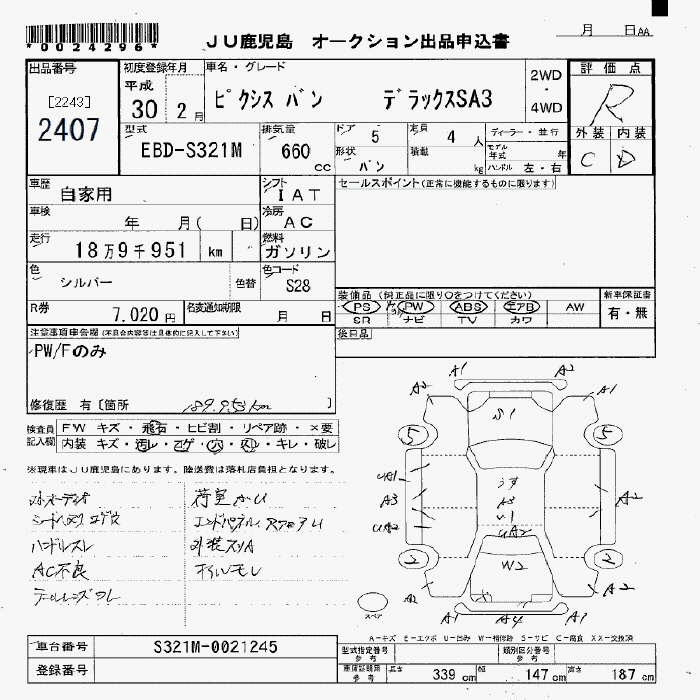 *0024296*
JU鹿児島 オークション出品申込書
月 日AA
出品番号
[2243]
2407
初度登録年月
平成
30 2月
車名・グレード
ピクシス バン デラックスSA3
2WD
・
4WD
評価点
R
外装 内装
C D
型式
EBD-S321M
排気量
660
cc
ドア 5
定員 4 人
形状 バン
積載 kg
ディーラー・並行
モデル年式 年
ハンドル 左・右
車歴
自家用
シフト
IAT
セールスポイント(正常に機能するものに限ります)
車検
年 月( 日)
冷房
AC
走行
18万9千951 km
燃料
ガソリン
色
シルバー
色替
色コード
S28
R券
7,020円
名変通知期限
月 日
装備品(純正品に限り○をつけてください)
PS PW ABS エアB AW
SR ナビ TV カワ
新車保証書
有・無
後日品
注意事項申告欄(不具合内容等は具体的に記入して下さい)
PW/Fのみ
修復歴 有〔箇所 189,953km 〕
検査員記入欄
FW キズ・飛石・ヒビ割・リペア跡・×要
内装 キズ・汚レ・コゲ・穴・スレ・キレ・破レ
※現車はJU鹿児島にあります。陸送費は落札店負担となります。
ハンドルスレ
AC不良
荷室
A2 A1 A1 A2
S1
5 5
UA1
A3
UA2
A3
UA2
A2
W2
2 2
A2 A1 A4 A1 A2
スペア
A-キズ E-エクボ U-凹み W-補修跡 S-サビ C-腐食 XX-交換済
車台番号 S321M-0021245
登録番号
型式指定番号 参考
類別区分番号 参考
車庫証明等 参考
長さ 339 cm 幅 147 cm 高さ 187 cm